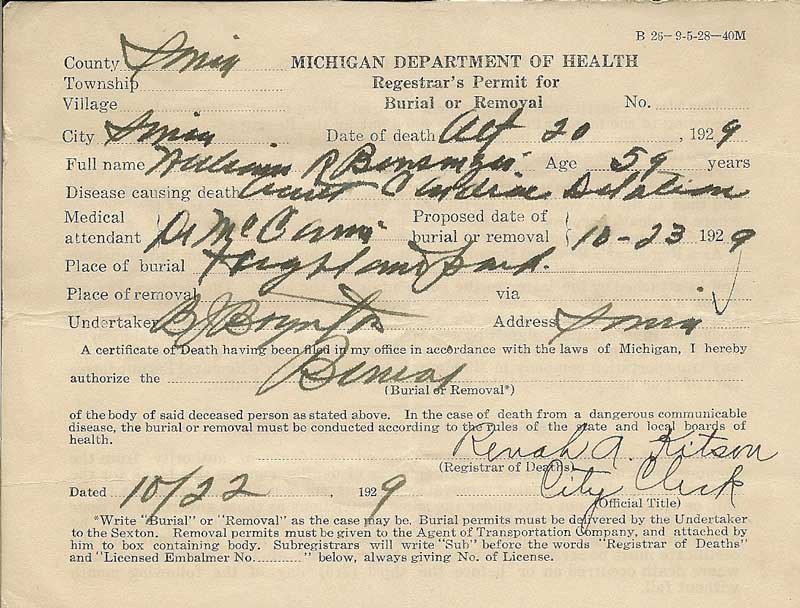 B 26—9-5-28—40M
County Ionia MICHIGAN DEPARTMENT OF HEALTH
Township Regestrar's Permit for
Village Burial or Removal No.
City Ionia Date of death Oct 20, 1929
Full name William R Age 59 years
Disease causing death Acute Cardiac Dilation
Medical attendant Dr McCann Proposed date of burial or removal 10-23 1929
Place of burial Highland Park.
Place of removal via
Undertaker B J Boynton Address Ionia
A certificate of Death having been filed in my office in accordance with the laws of Michigan, I hereby
authorize the Burial
(Burial or Removal*)
of the body of said deceased person as stated above. In the case of death from a dangerous communicable
disease, the burial or removal must be conducted according to the rules of the state and local boards of
health.
Renah A. Kitson
(Registrar of Deaths)
City Clerk
Dated 10/22, 1929 (Official Title)
*Write "Burial" or "Removal" as the case may be. Burial permits must be delivered by the Undertaker
to the Sexton. Removal permits must be given to the Agent of Transportation Company, and attached by
him to box containing body. Subregistrars will write "Sub" before the words "Registrar of Deaths"
and "Licensed Embalmer No. " below, always giving No. of License.